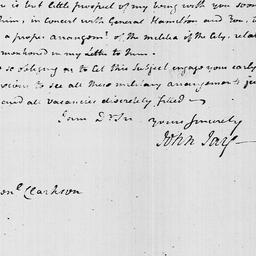 is but little prospect of my being with you soon
him, in concert with General Hamilton and You, t
a proper arrangemt. of the militia of the City, relat
monhond in my Letter to him.
so obliging as to let this Subject engage your early
to see all these military arrangements
and all vacancies discretely filled —
I am Dr Sir
Yours Sincerely
John Jay
Clarkson